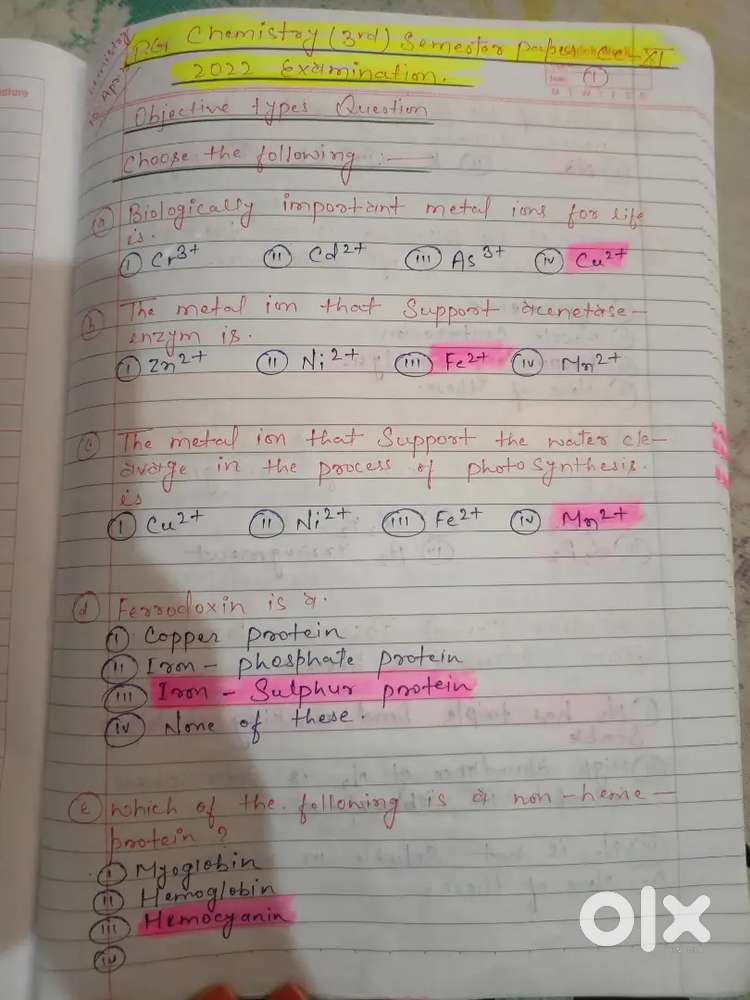 PG Chemistry (3rd) Semester paper-XI
2022 Examination.
(1)
Objective types Question
Choose the following :—
(a) Biologically important metal ions for life
is.
(i) Cr3+ (ii) Cd2+ (iii) As3+ (iv) Cu2+
(b) The metal ion that Support acenetase-
enzym is.
(i) Zn2+ (ii) Ni2+ (iii) Fe2+ (iv) Mn2+
(c) The metal ion that Support the water cle-
avage in the process of photosynthesis.
is
(i) Cu2+ (ii) Ni2+ (iii) Fe2+ (iv) Mn2+
(d) Ferrodoxin is a.
(i) Copper protein
(ii) Iron - phosphate protein
(iii) Iron - Sulphur protein
(iv) None of these.
(e) which of the following is a non-heme-
protein ?
(i) Myoglobin
(ii) Hemoglobin
(iii) Hemocyanin
(iv)
olx